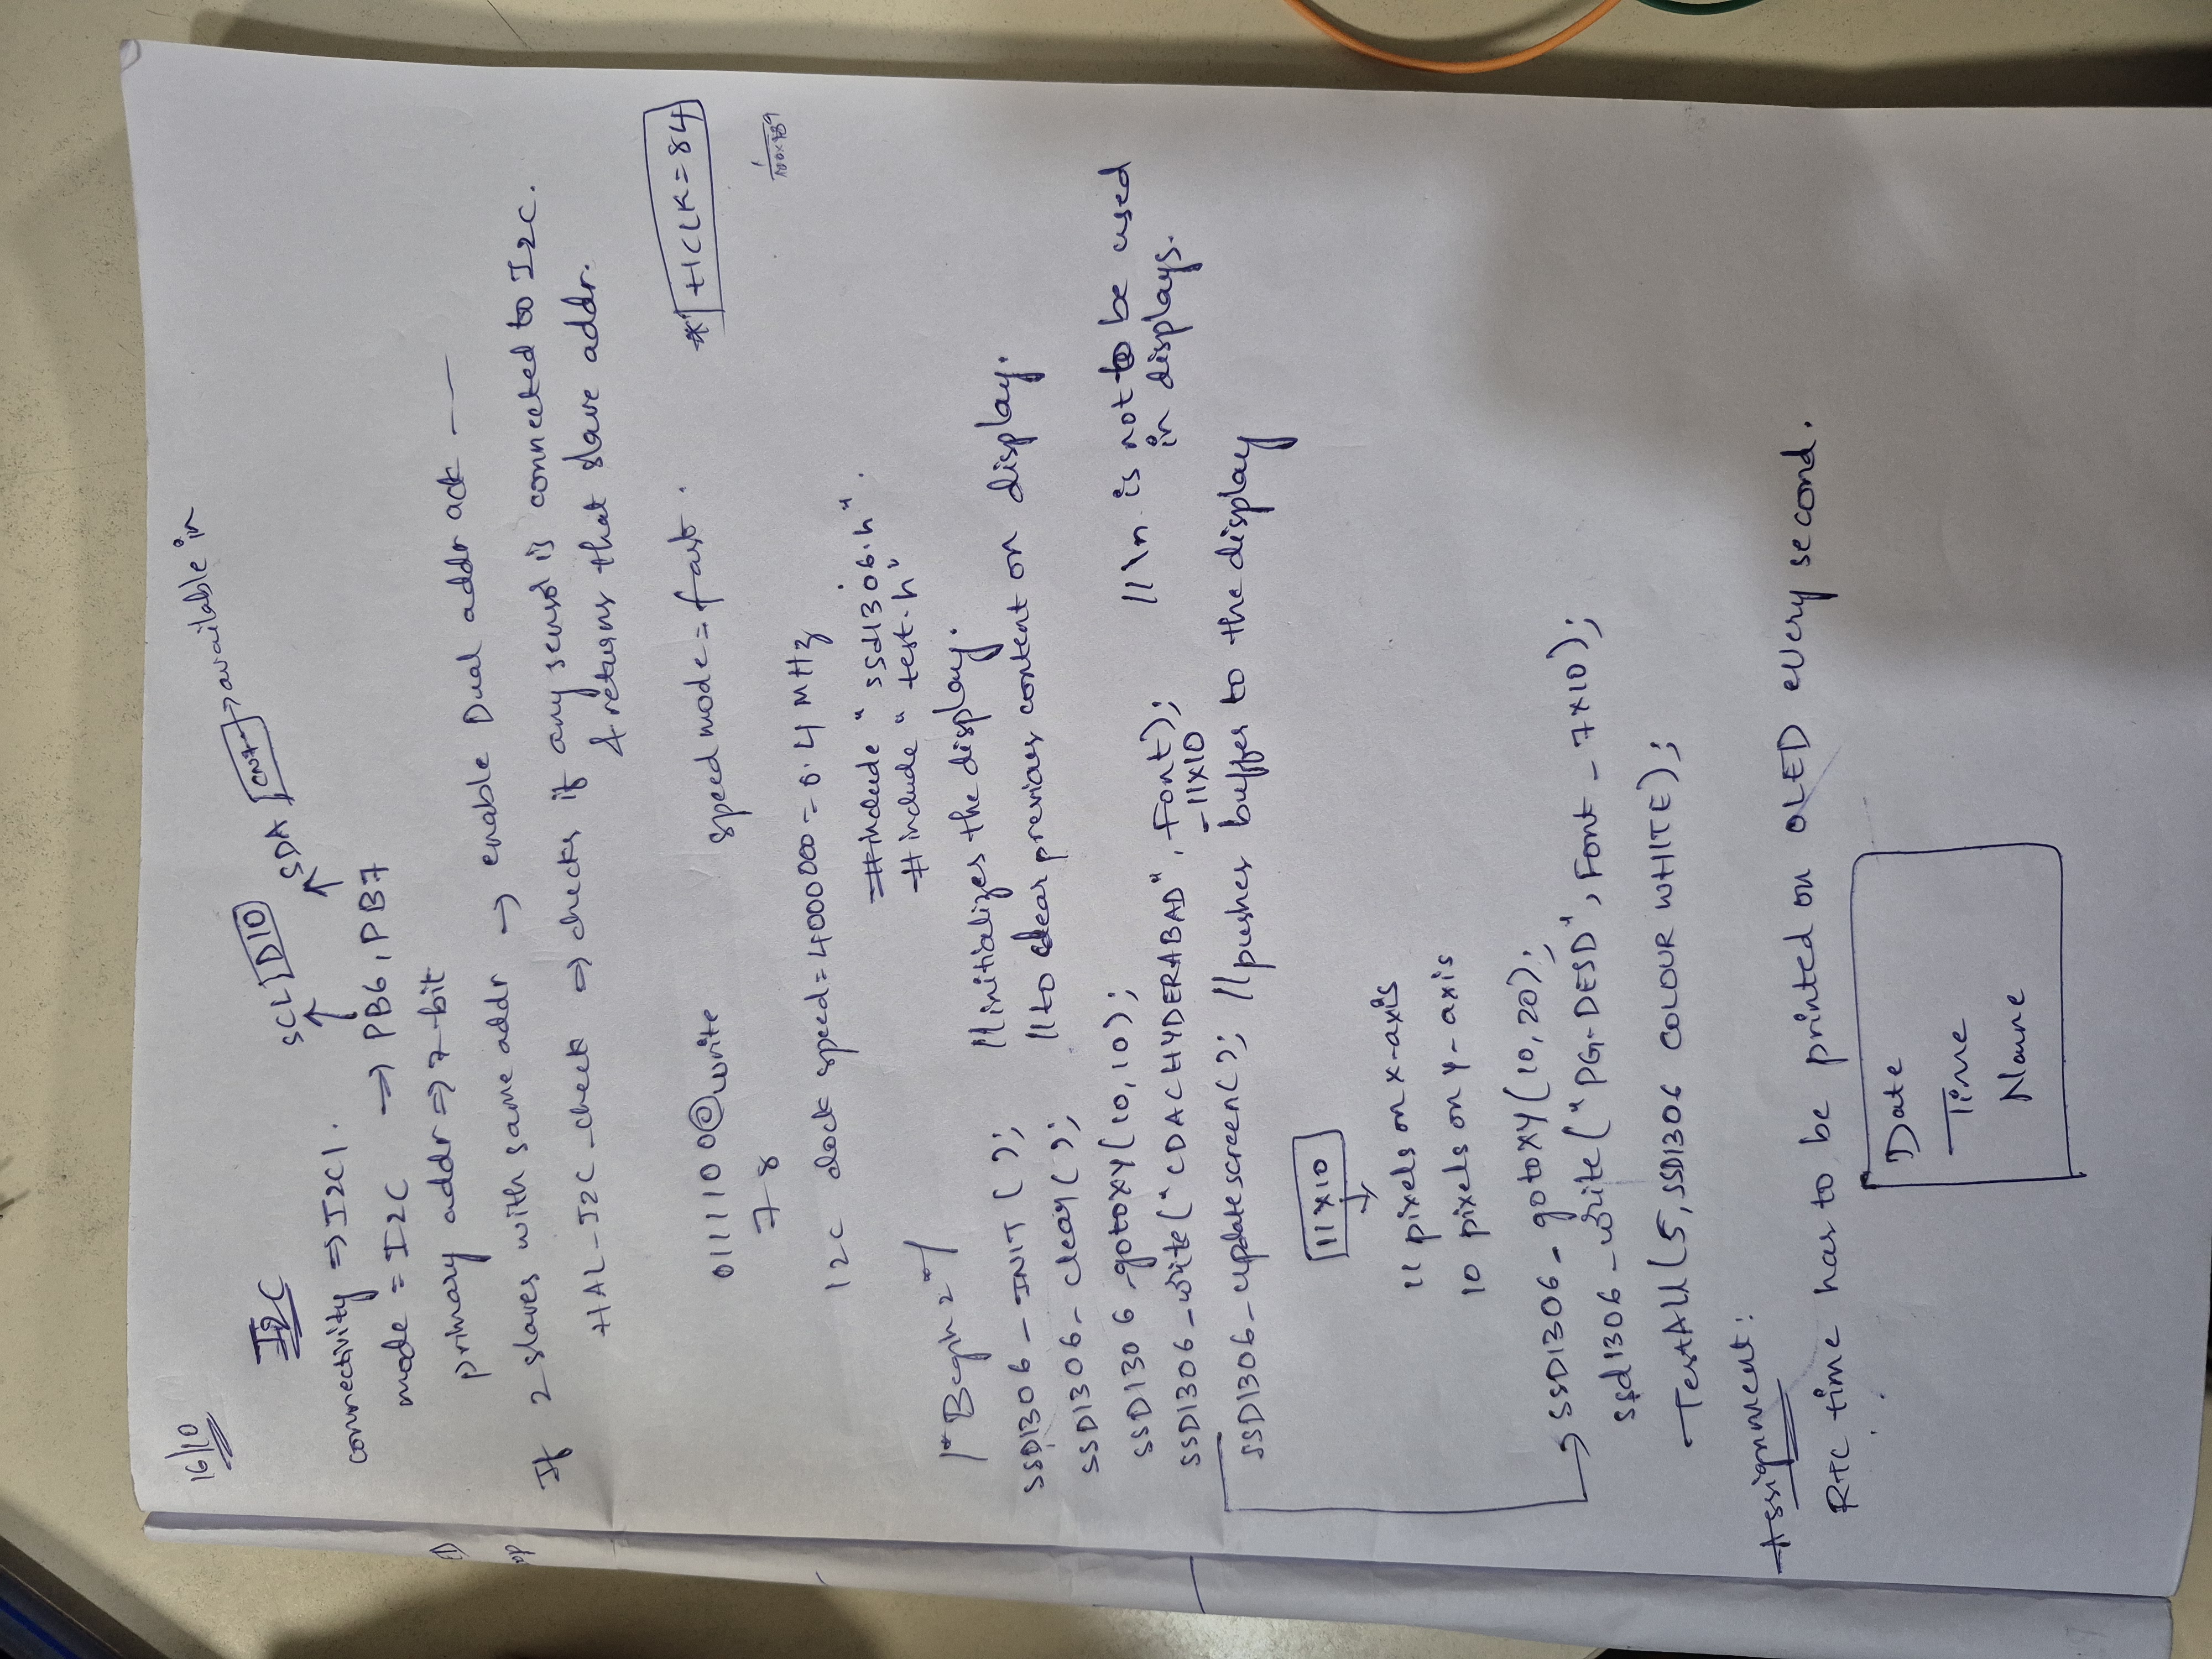 16/10
I2C
SCL D10 SDA CN7 → available in
connectivity ⇒ I2C1.
mode = I2C ⇒ PB6, PB7
primary addr ⇒ 7-bit
If 2 slaves with same addr → enable Dual addr ack —
HAL_I2C_check ⇒ checks if any sensor is connected to I2C.
& returns that slave addr.
0111100 0 write speed mode = fast. * HCLK=84
78
I2C clock speed = 4000000 = 0.4 MHz
#include "ssd1306.h".
#include "test.h"
/*Begin 2*/
SSD1306_INIT(); //initializes the display.
SSD1306_clear(); //to clear previous content on display.
SSD1306_gotoxy(10,10);
SSD1306_write("CDAC HYDERABAD", Font); //\n is not to be used
_11x10 in displays.
SSD1306_updatescreen(); //pushes buffer to the display
11x10
↓
11 pixels on x-axis
10 pixels on y-axis
→ SSD1306_gotoxy(10,20);
ssd1306_write("PG-DESD", Font_7x10);
TestAll(5, SSD1306 COLOUR WHITE);
Assignment:
RTC time has to be printed on OLED every second.
Date
Time
Name